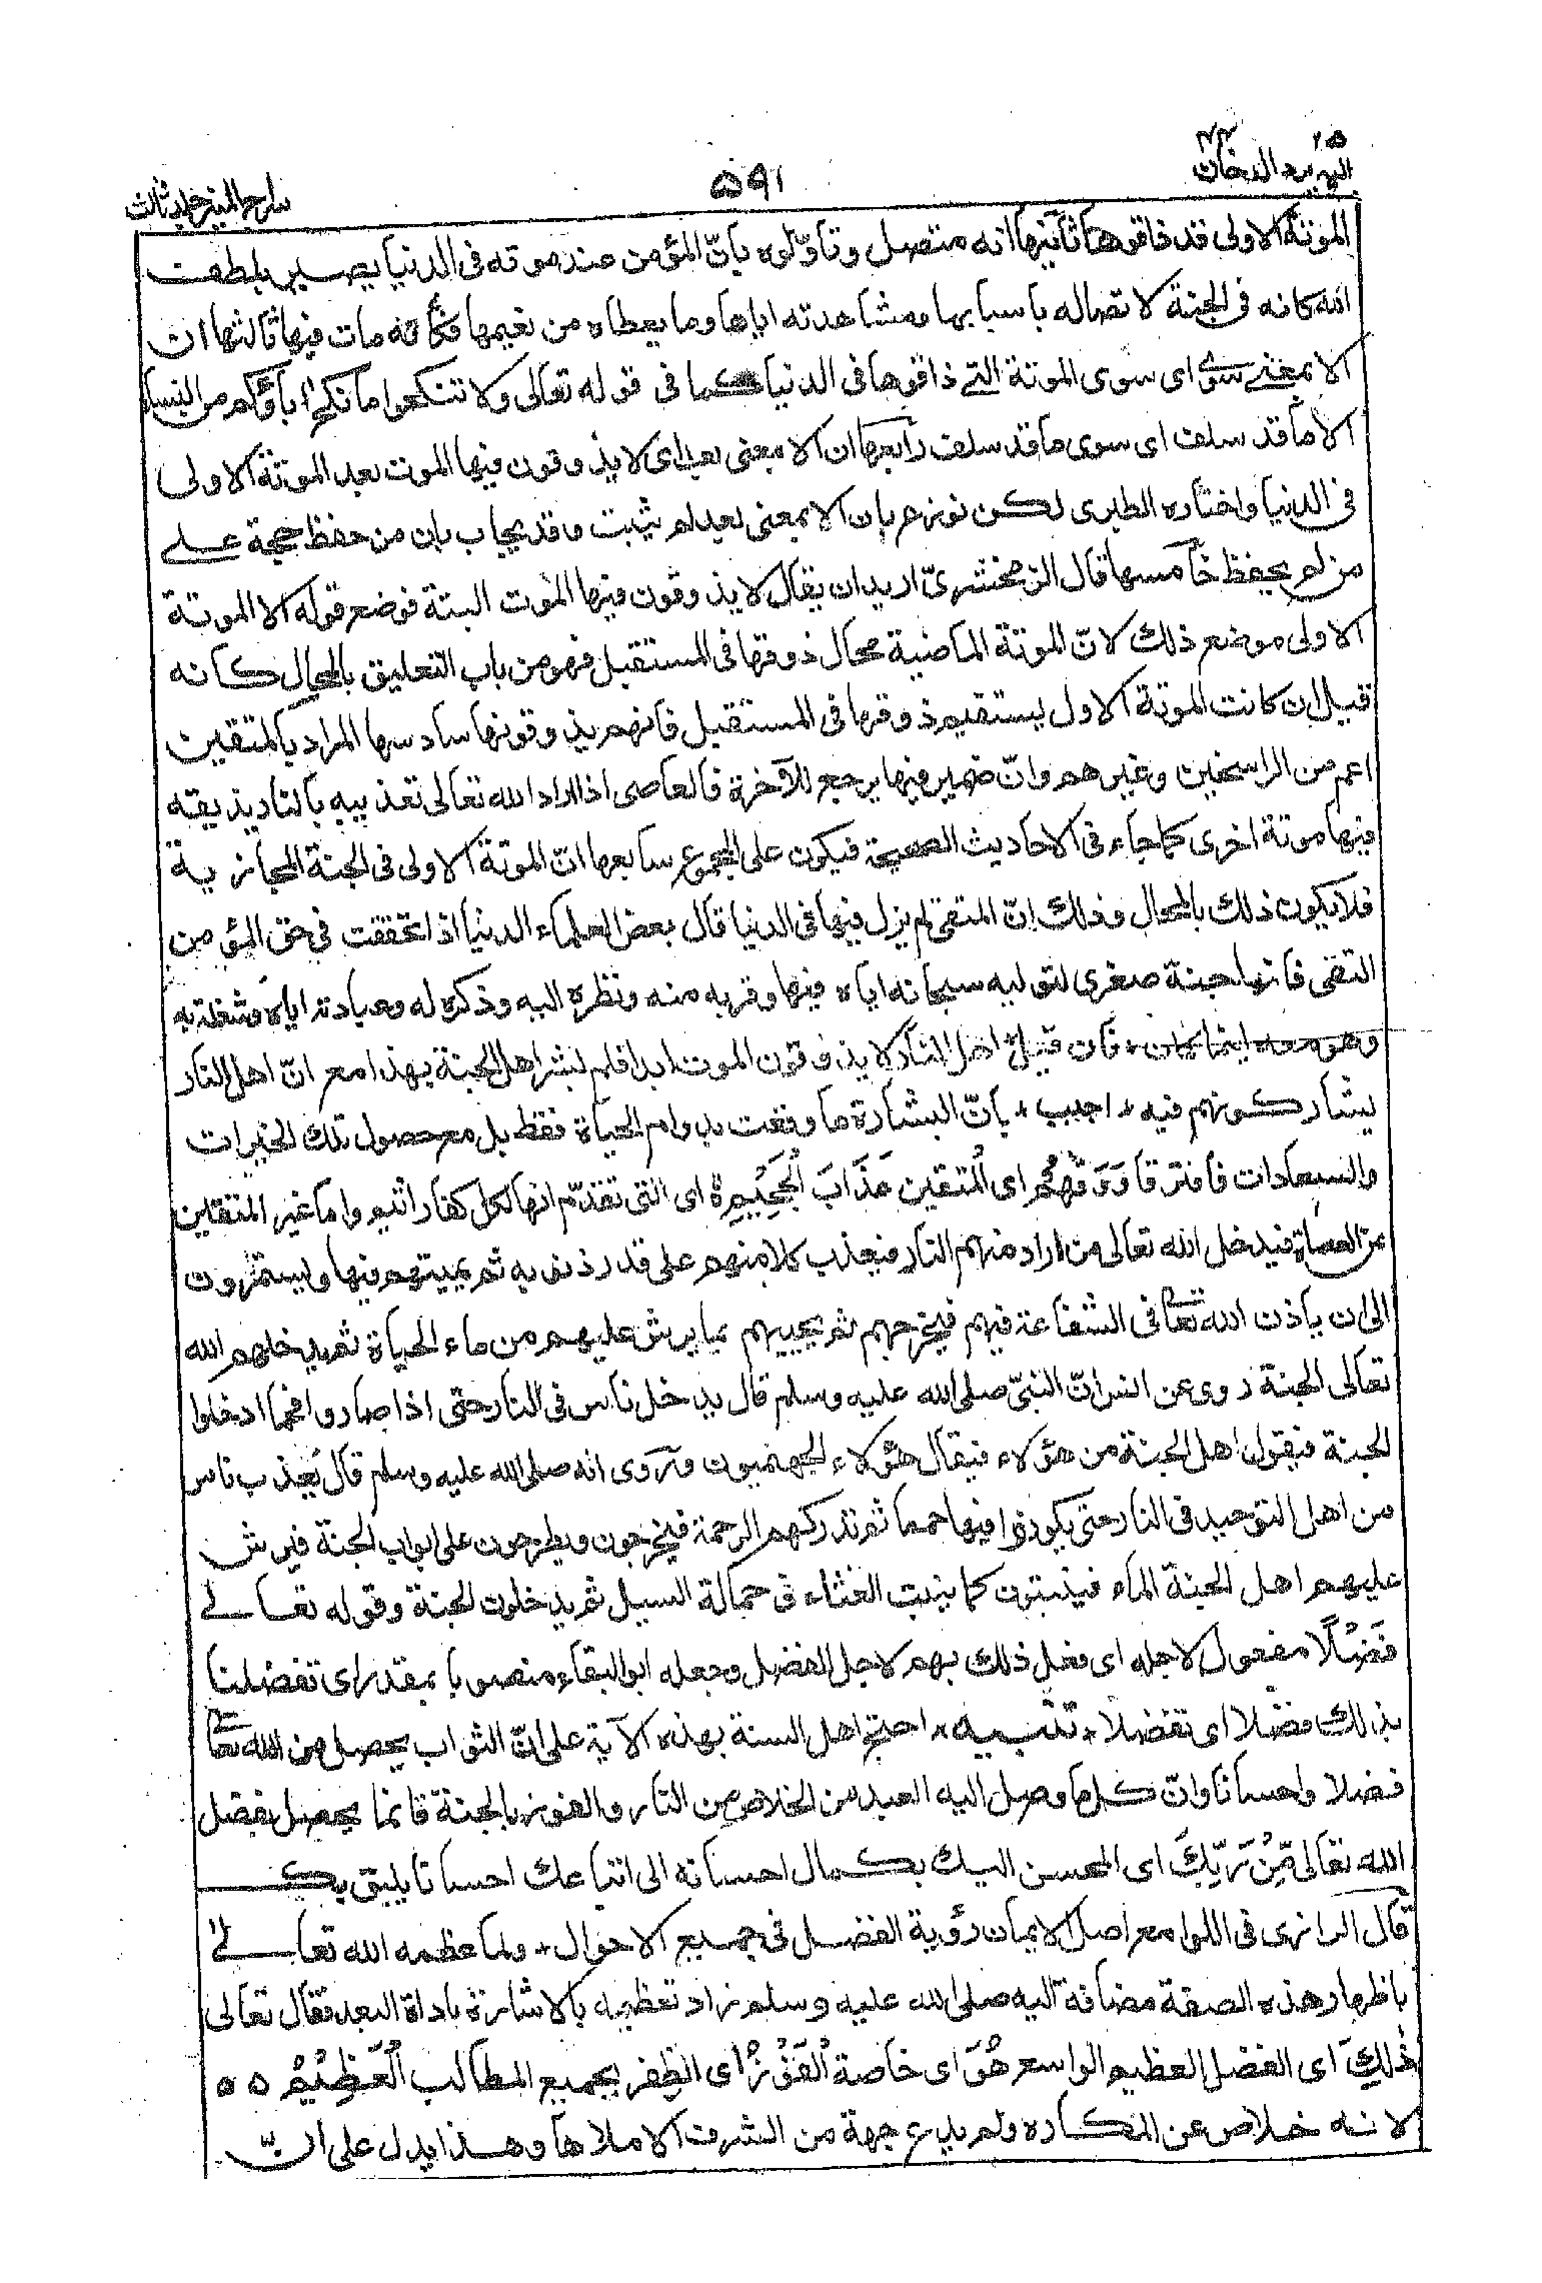 ٢٥ ٤٤
اليه يرد الدخان
٥٩١
سراج المنير جلد ثالث
الموتة الاولى قد ذاقوها ثانيها انه متصل وتاوّلوه بانّ المؤمن عند موته فى الدنيا يصير بلطف
الله كانه فى الجنة لاتصاله باسبابها ومشاهدته اياها وما يعطاه من نعيمها فكأنه مات فيها ثالثها ان
الا بمعنى سوى اى سوى الموتة التى ذاقوها فى الدنيا كما فى قوله تعالى ولا تنكحوا ما نكح اباؤكم من النساء
الا ما قد سلف اى سوى ما قد سلف رابعها ان الا بمعنى بعد اى لا يذوقون فيها الموت بعد الموتة الاولى
فى الدنيا واختاره الطبرى لكن نوزع بان الا بمعنى بعد لم يثبت وقد يجاب بان من حفظ حجة على
من لم يحفظ خامسها قال الزمخشرىّ اريد ان يقال لا يذوقون فيها الموت البتة فوضع قوله الا الموتة
الاولى موضع ذلك لانّ الموتة الماضية محال ذوقها فى المستقبل فهو من باب التعليق بالمحال كانه
قيل ان كانت الموتة الاولى يستقيم ذوقها فى المستقبل فانهم يذوقونها سادسها المراد بالمتقين
اعم من الراسخين وغيرهم وانّ ضمير فيها يرجع للآخرة فالعاصى اذا اراد الله تعالى تعذيبه بالنار يذيقه
فيها موتة اخرى كما جاء فى الاحاديث الصحيحة فيكون على المجموع سابعها انّ الموتة الاولى فى الجنة المجازية
فلا يكون ذلك بالمحال وذلك انّ المتقى لم يزل فيها فى الدنيا قال بعض العلماء الدنيا اذا تحققت فى حق المؤمن
التقى فانها جنة صغرى لتوليه سبحانه اياه فيها وقربه منه ونظره اليه وذكره له وعبادته اياه وشغلته به
وهو معه اينما كان * فان قيل اهل النار لا يذوقون الموت ابدا فلم بشر اهل الجنة بهذا مع انّ اهل النار
يشاركونهم فيه * اجيب * بانّ البشارة ما وقعت بدوام الحياة فقط بل مع حصول تلك الخيرات
والسعادات فافترقا وَوَقٰهُمْ اى المتقين عَذَابَ الْجَحِيْمِ اى التى تقدّم انها لكل كفار اثيم واما غير المتقين
من العصاة فيدخل الله تعالى من اراد منهم النار فيعذب كلا منهم على قدر ذنوبه ثم يميتهم فيها ويستمرون
الى ان ياذن الله تعالى فى الشفاعة فيهم فيخرجهم ثم يحييهم بما يرش عليهم من ماء الحياة ثم يدخلهم الله
تعالى الجنة روى عن انس انّ النبىّ صلى الله عليه وسلم قال يدخل ناس فى النار حتى اذا صاروا فحما ادخلوا
الجنة فيقول اهل الجنة من هؤلاء فيقال هؤلاء الجهنميون وروى انه صلى الله عليه وسلم قال يعذب ناس
من اهل التوحيد فى النار حتى يكونوا فيها حمما ثم تدركهم الرحمة فيخرجون ويطرحون على ابواب الجنة فيرش
عليهم اهل الجنة الماء فينبتون كما ينبت الغثاء فى حمالة السيل ثم يدخلون الجنة وقوله تعالى
فَضْلًا مفعول لاجله اى فعل ذلك بهم لاجل الفضل وجعله ابو البقاء منصوبا بمقدر اى تفضلنا
بذلك فضلا اى تفضلا * تنبيه * احتج اهل السنة بهذه الآية على انّ الثواب يحصل من الله تعالى
فضلا واحسانا وانّ كل ما وصل اليه العبد من الخلاص من النار والفوز بالجنة فانما يحصل بفضل
الله تعالى مِّنْ رَّبِّكَ اى المحسن اليك بكمال احسانه الى اتباعك احسانا يليق بك
قال الرازى فى اللوامع اصل الايمان رؤية الفضل فى جميع الاحوال * ولما عظمه الله تعالى
باظهار هذه الصفة مضافة اليه صلى الله عليه وسلم زاد تعظيمه بالاشارة باداة البعد فقال تعالى
ذٰلِكَ اى الفضل العظيم الواسع هُوَ اى خاصة الْفَوْزُ اى الظفر بجميع المطالب الْعَظِيْمُ ٥٥
لانه خلاص عن المكاره ولم يدع جهة من الشرف الا ملأها وهذا يدل على انّ